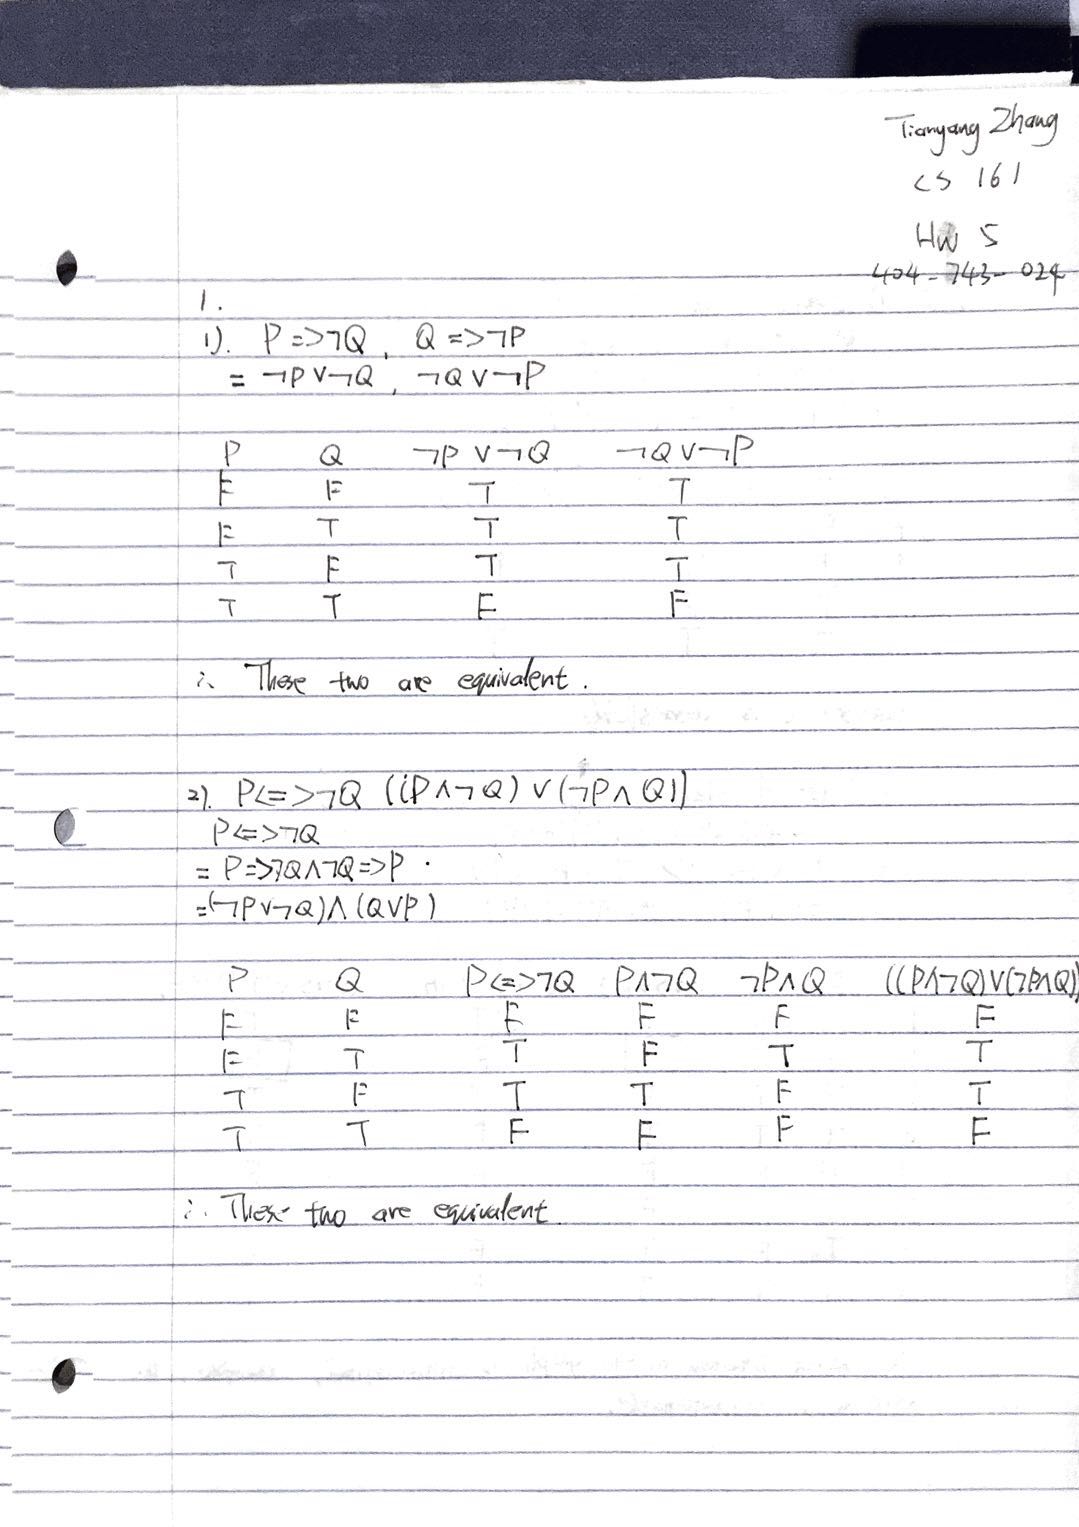 Tianyang Zhang
CS 161
HW 5
404-743-024
1.
1). P=>¬Q, Q=>¬P
= ¬P∨¬Q, ¬Q∨¬P
P Q ¬P∨¬Q ¬Q∨¬P
F F T T
F T T T
T F T T
T T F F
∴ These two are equivalent.
2). P<=>¬Q ((P∧¬Q)∨(¬P∧Q))
P<=>¬Q
= P=>¬Q∧¬Q=>P.
=(¬P∨¬Q)∧(Q∨P)
P Q P<=>¬Q P∧¬Q ¬P∧Q ((P∧¬Q)∨(¬P∧Q))
F F F F F F
F T T F T T
T F T T F T
T T F F F F
∴ These two are equivalent.